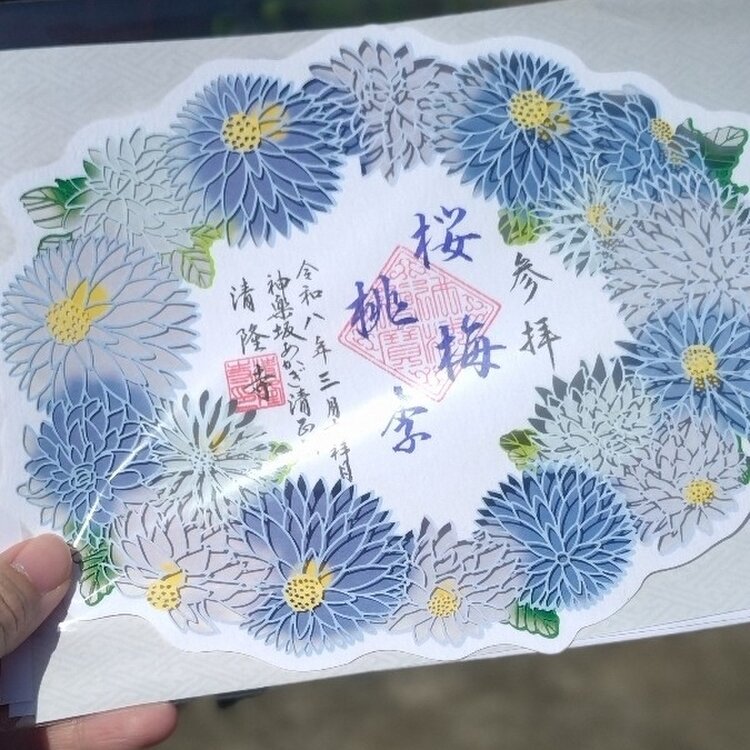 参拝
桜梅
桃李
令和八年三月 拝
神楽坂あかぎ清正
清隆寺